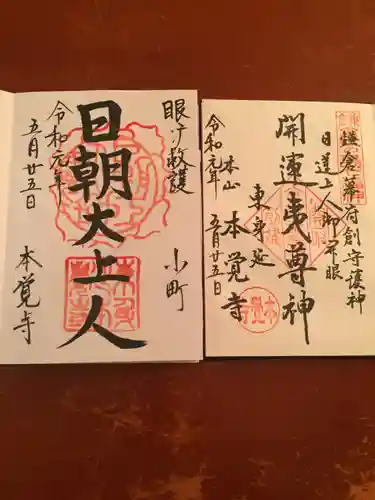 鎌倉幕府創守護神
日道上人御開眼
開運夷尊神
東身延
本山 本覚寺
令和元年 五月廿五日
眼ヲ救護 小町
日朝大上人
令和元年
五月廿五日 本覚寺